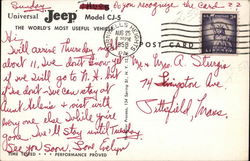 Sunday
Do you recognize the Card ??
Universal Jeep Model CJ-5
THE WORLD'S MOST USEFUL VEHICLE
POST CARD
AUG 25
PM
1958
Hi
Will arrive Thursday night
about 11, we don't know yet
if we will go to N. H. but
if we don't we can stay at
Aunt Helen's + visit with
every one else while you're
gone. We'll stay until Tuesday.
See you soon, Love Evelyn
Mr + Mrs A. Sturgis
74 Livingston Ave
Pittsfield, Mass.
TIME TESTED PERFORMANCE PROVED